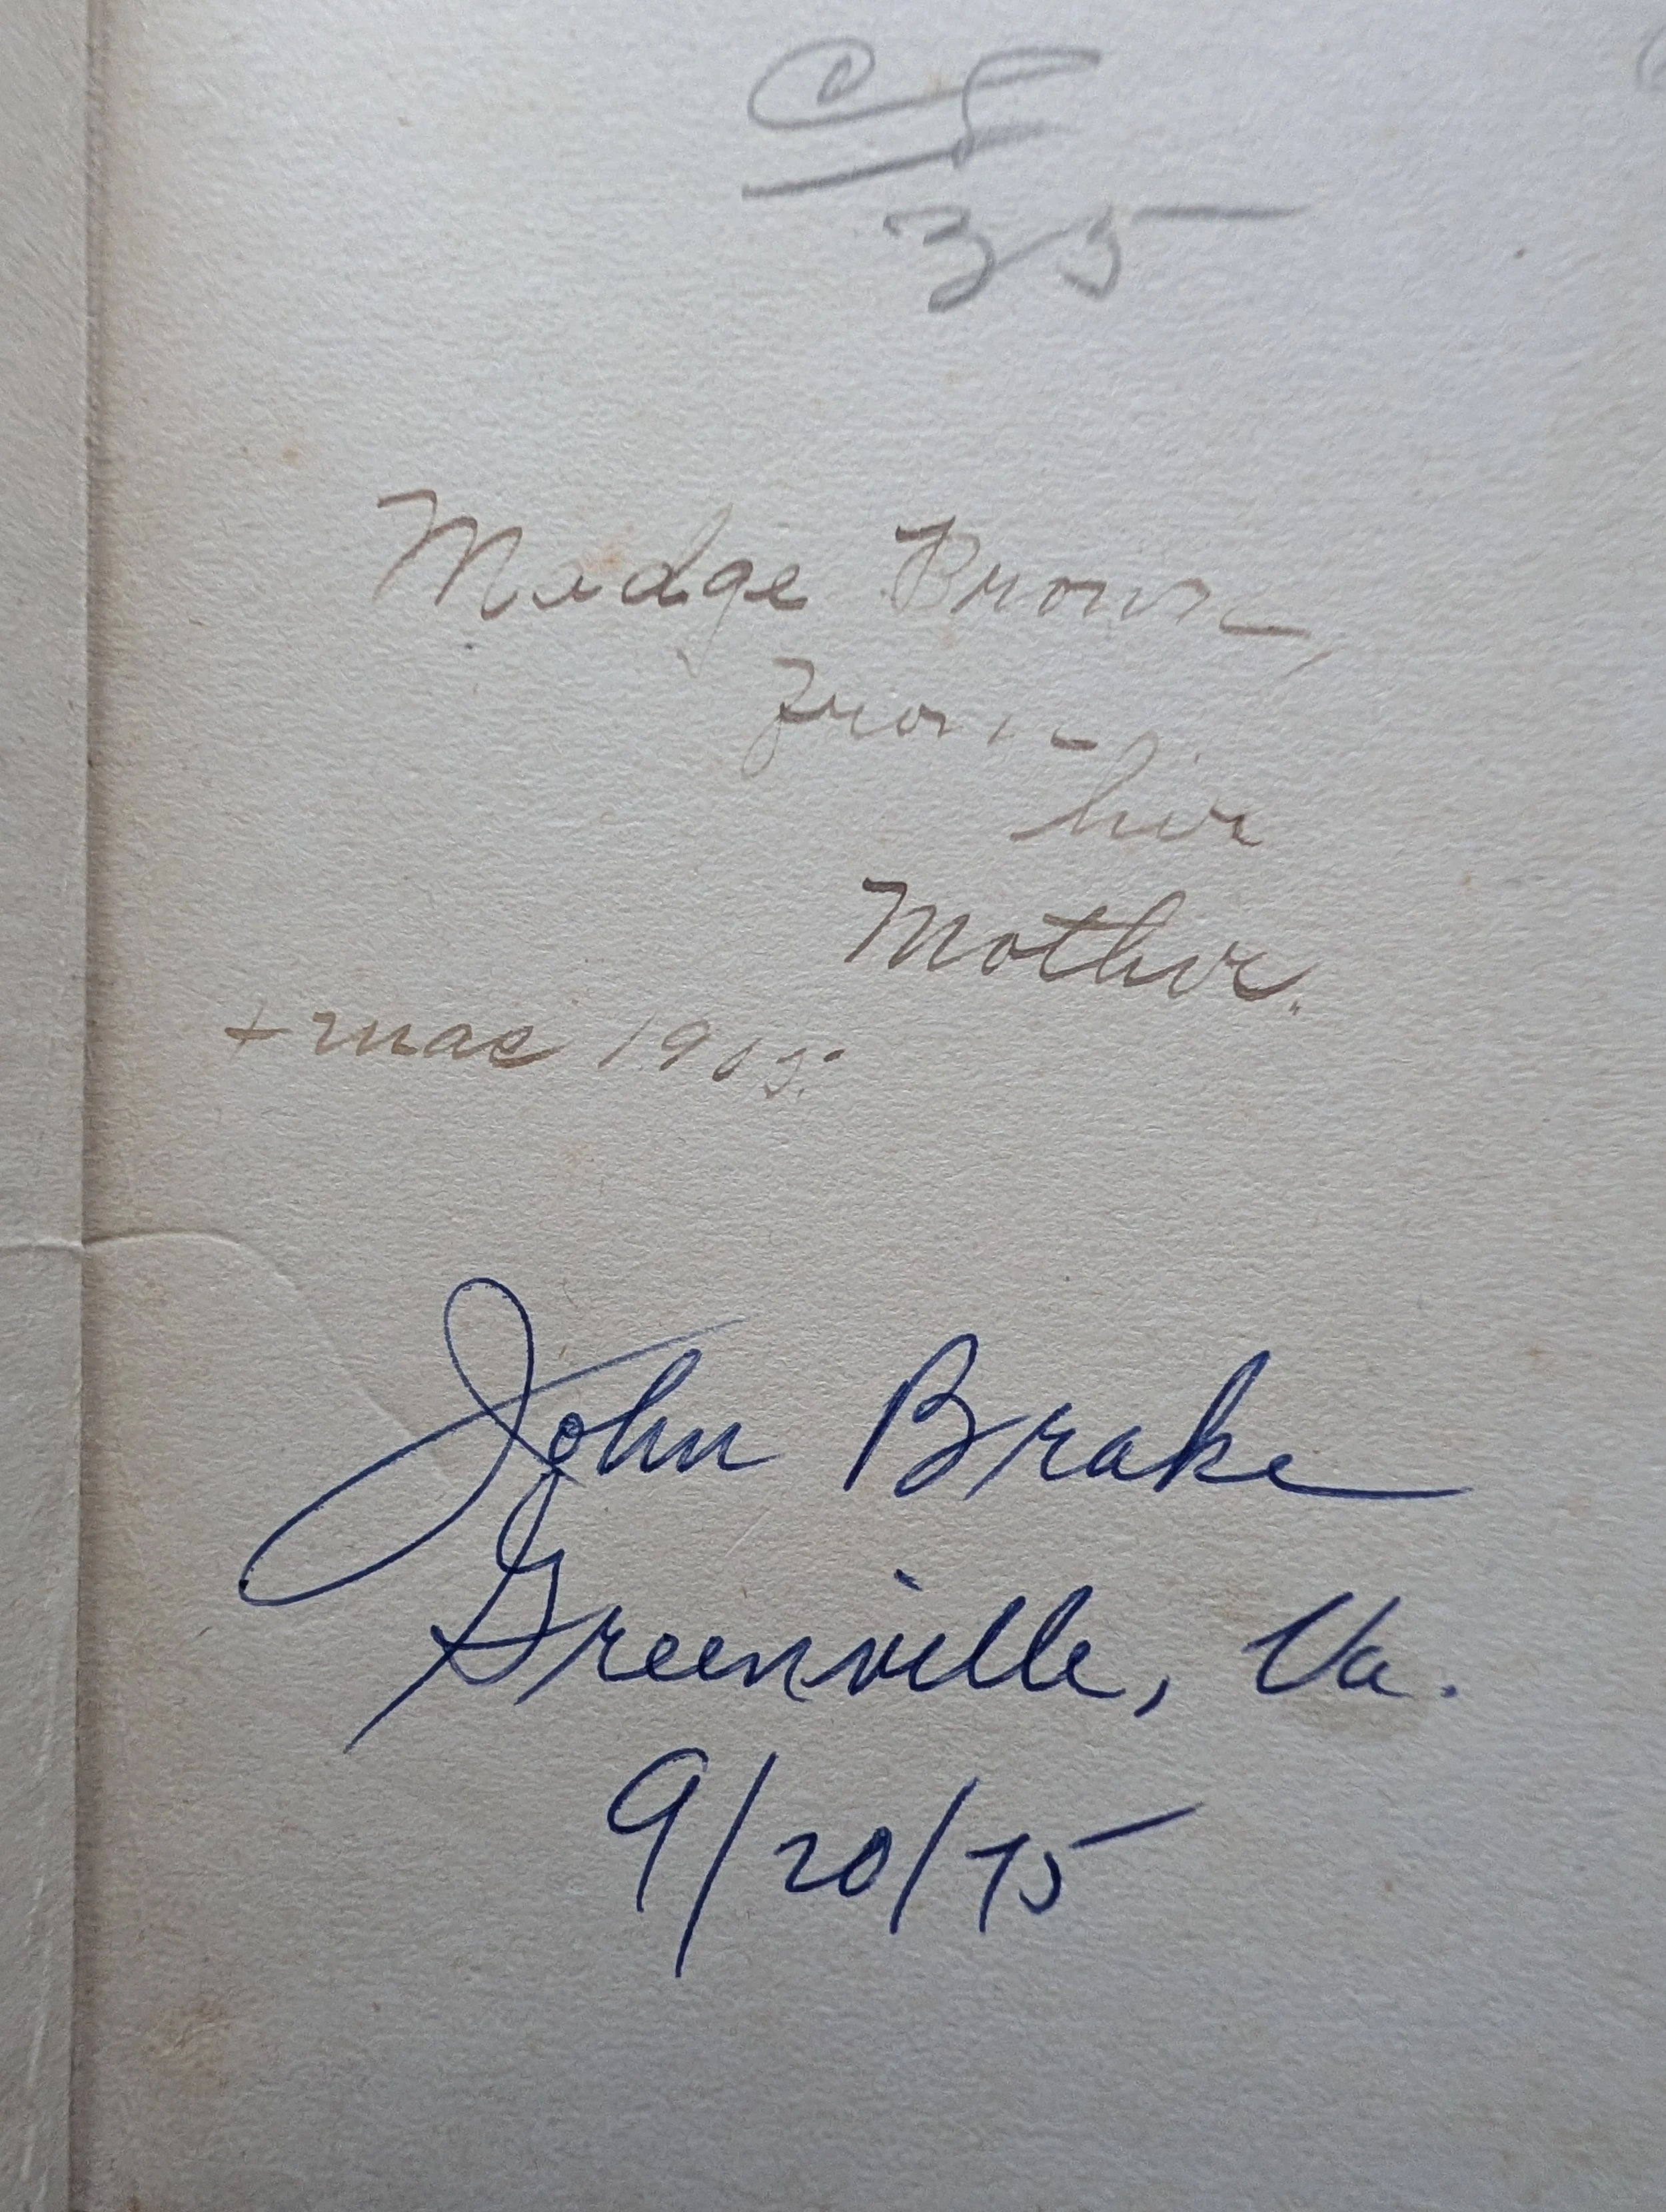 35
Madge Brown,
from
her
Mother.
Xmas 1905.
John Brake
Greenville, Va.
9/20/75